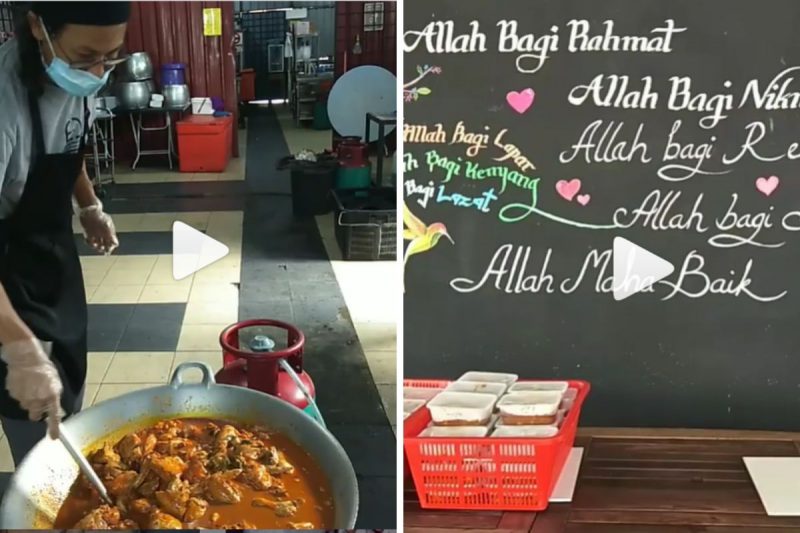 Allah Bagi Rahmat
Allah Bagi Nikm
Allah Bagi Lapar
Allah bagi Re
h Bagi Kenyang
Bagi Lazat
Allah bagi
Allah Maha Baik